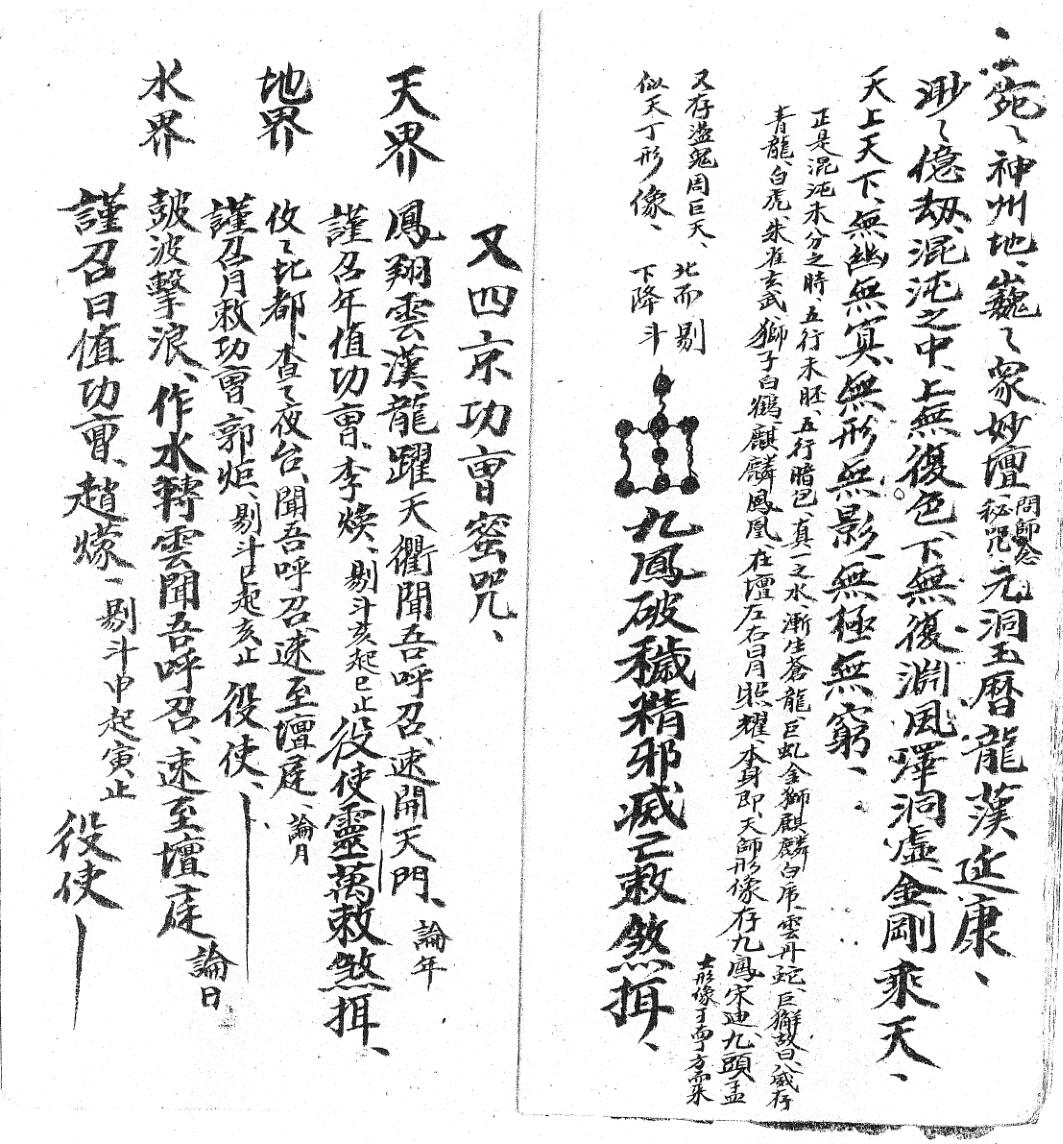 宛〻神州地、巍〻衆妙壇、秘咒、元洞玉曆、龍漢延康、
問師念
渺〻億劫、混沌之中、上無復色、下無復淵、風澤洞虛、金剛乘天、
天上天下、無幽無冥、無形無影、無極無窮、
正是混沌未分之時、五行未胚、五行暗包、真一之水、漸生蒼龍、巨虬金獅麒麟白席、雲丹蛇、巨獬故曰八威存
青龍、白虎、朱雀玄武、獅子白鶴、麒麟鳳凰、在壇左右日月照耀、本身即天師形像存九鳳宋迪九頭孟
士形像于南丁方而來
又存盪兇周巨天、
似天丁形像、
北而剔
下降斗
九鳳破穢精邪滅亡敕煞揖、
又四京功曹蜜咒、
天界
鳳翔雲漢、龍躍天衢聞吾呼召、速開天門、論年
謹召年值功曹、李煥、剔斗亥起巳止役使靈萬敕煞揖、
地界
攸〻北都、杳〻夜台、聞吾呼召、速至壇庭、論月
謹召月敕功曹、郭炬、剔斗巳起亥止役使、
水界
皷波擊浪、作水轉雲聞吾呼召、速至壇庭、論日
謹召日值功曹、趙㸏、剔斗申起寅止役使